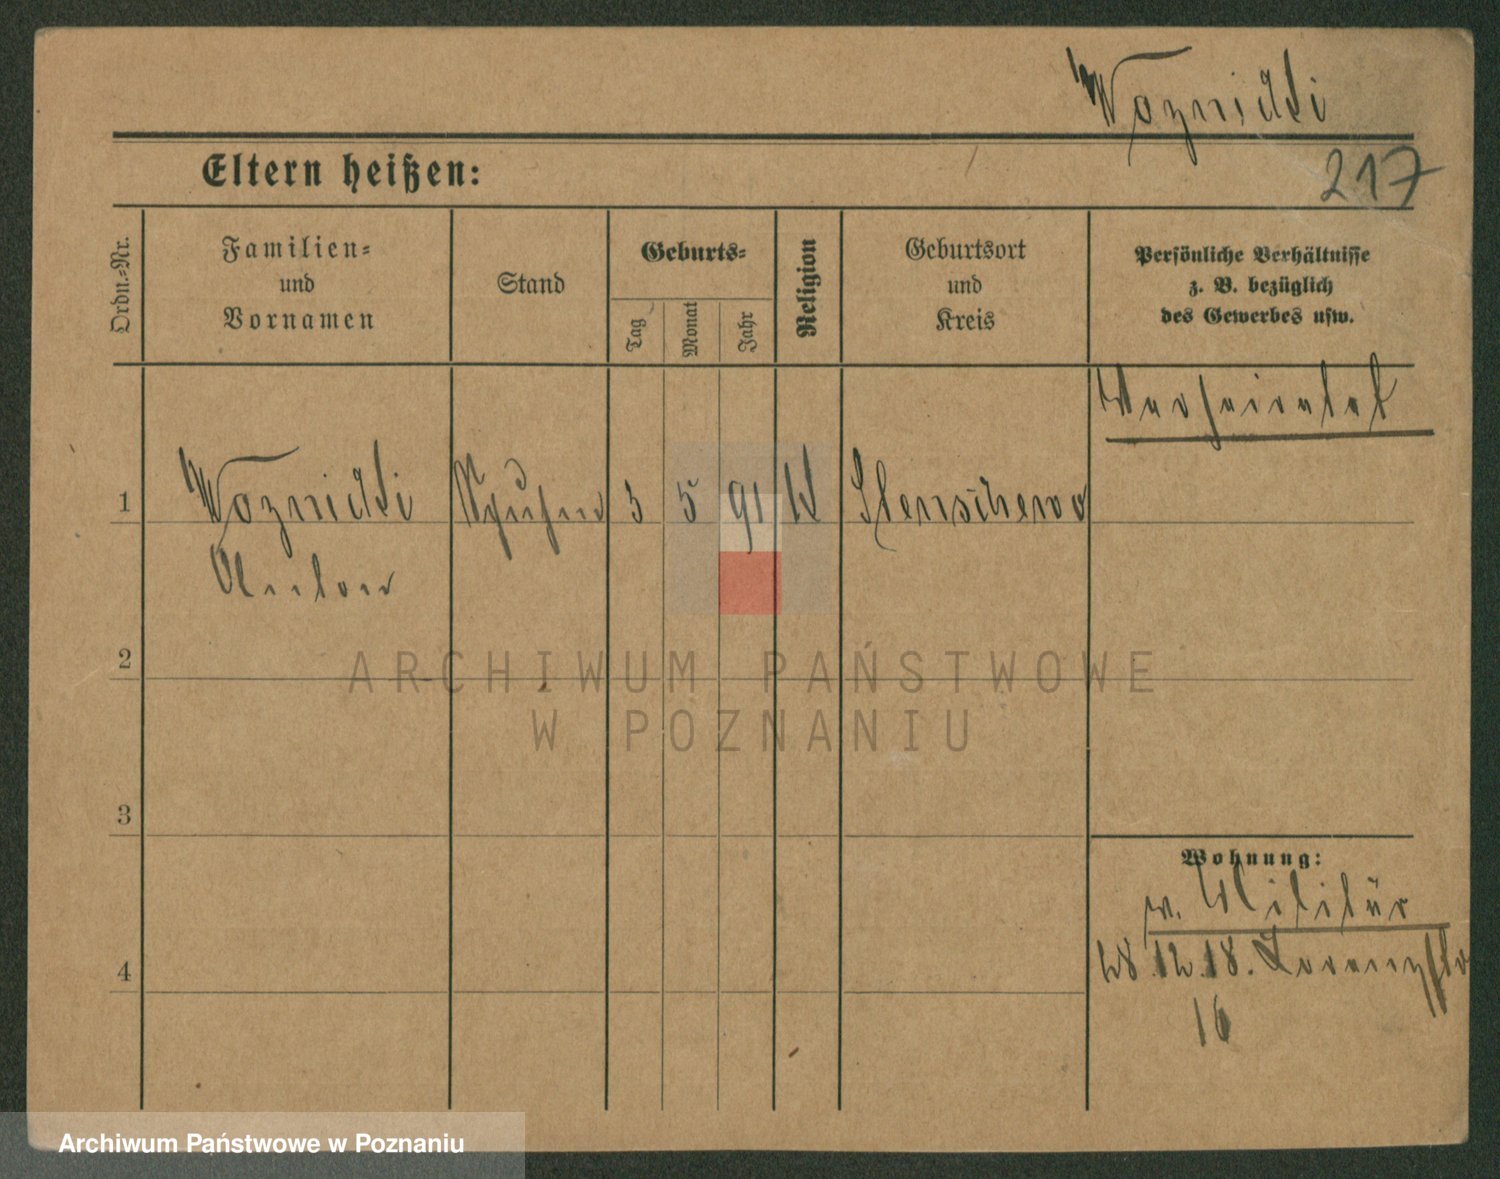 Woznicki
Eltern heißen:
217
Ordn.-Nr.
Familien-
und
Vornamen
Stand
Geburts-
Tag
Monat
Jahr
Religion
Geburtsort
und
Kreis
Persönliche Verhältnisse
z. B. bezüglich
des Gewerbes usw.
Verheiratet
1 Woznicki 3 5 91 K Stenschewo
Anton
2
3
4
ARCHIWUM PAŃSTWOWE
W POZNANIU
Wohnung:
v. Militär
28.12.18. Lorenzstr
16
Archiwum Państwowe w Poznaniu